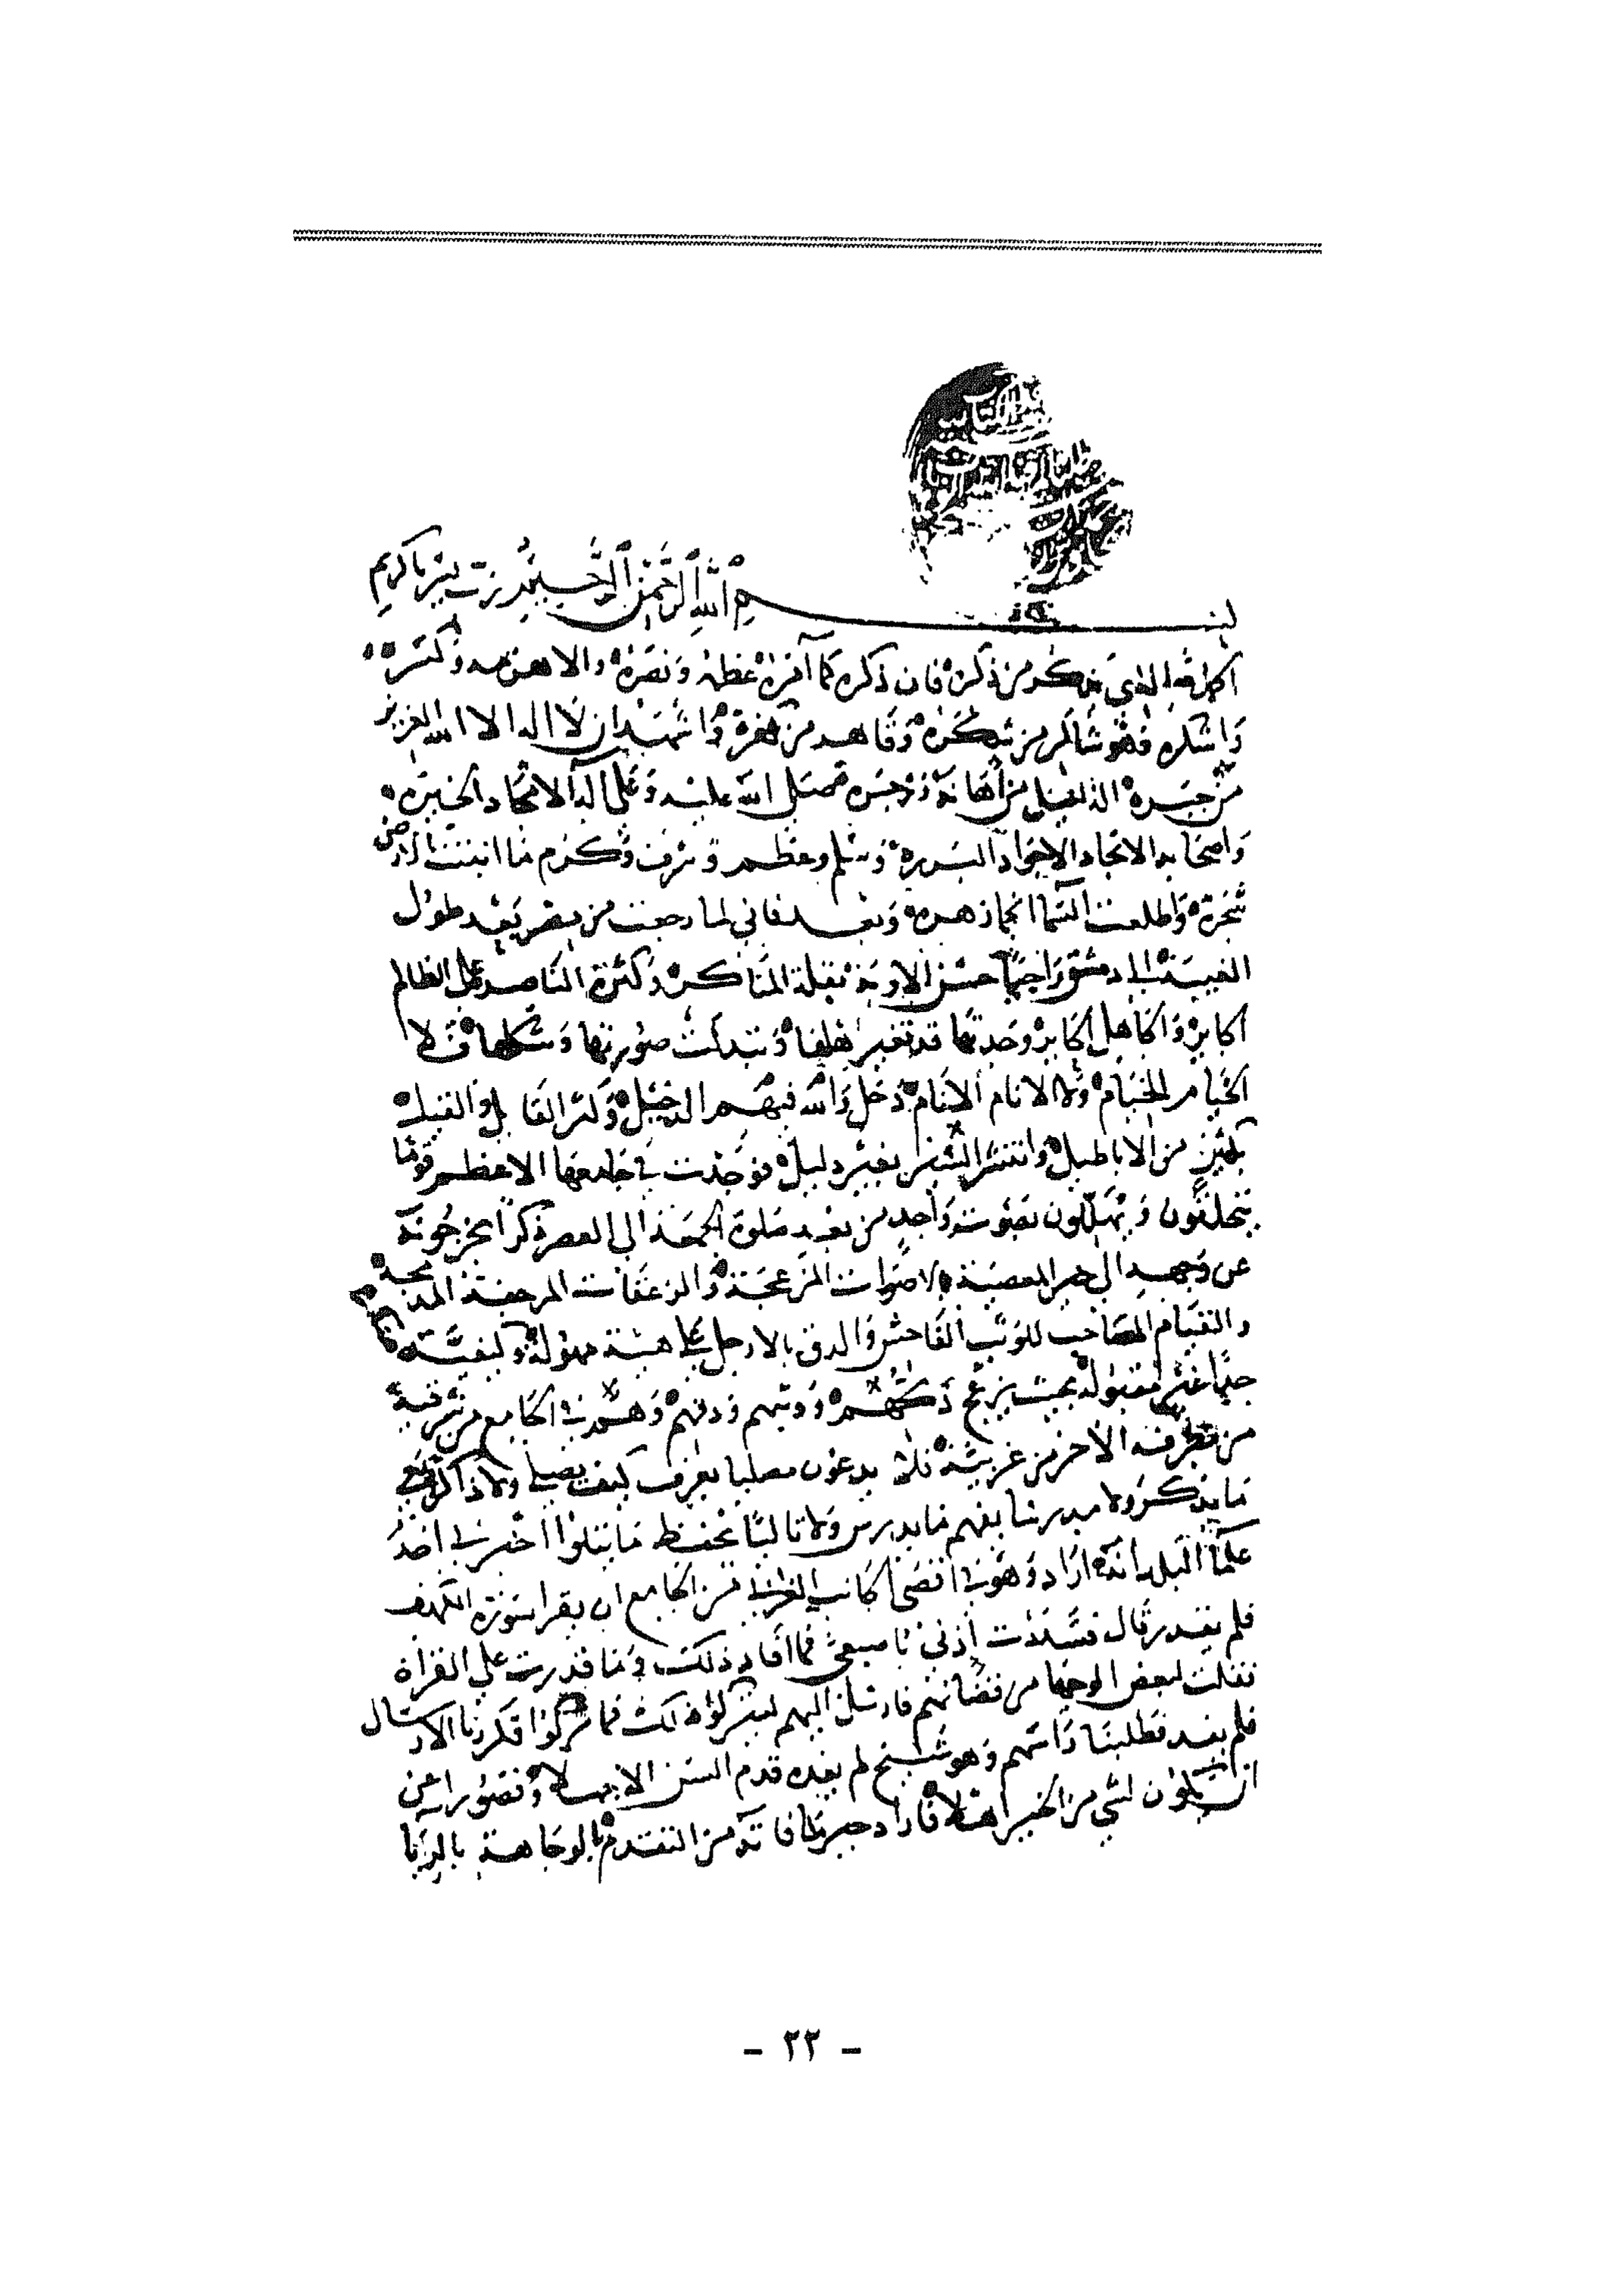 بسم الله الرحمن الرحيم رب يسر يا كريم
الحمد لله الذي يذكر من ذكره فان ذكره كما آمره عظمه ونصره والا وكسره
واشكره فهو شاكر من شكره وقاهر من كفره واشهد ان لا اله الا الله العزيز
من جبره الذليل من صلى الله عليه وعلى آله الامجاد الخيرة
واصحابه الانجاد الاجواد البررة وسلم وعظم وشرف وكرم ما انبتت الارض
شجرة واطلعت السما انجما زهرة وبعد فاني لما رجعت من بعد طول
الغيبة الى دمشق راجيا حسن الاوبة بقلة المناكر وكثرة الناصر على الظالم
اكابر وجدتها قد تغير وتبدلت صورتها وشكلها فلا
الخيام الخيام ولا الانام الانام دخل والله فيهم الدخيل وكثر القال والقيل
بكثير من الاباطيل وانتشر بغير دليل فوجدت في جامعها الاعظم قوما
يتحلقون ويهللون بصوت واحد من بعد صلوة الجمعة الى العصر ذكرا يخرجونه
عن وجهه الى المعصية بالاصوات المزعجة والزعقات المرجفة المدمجة
والقيام المصاحب للوثب الفاحش والدق بالارجل على هيئة مهولة وكيفية
جدا غير مقبولة بحيث يزعج ذكرهم ووثبهم ودقهم وهم في الجامع من شرقية
من بطرفه الاخر من غربيه فلا يدعون مصليا يعرف كيف يصلي ولا ذاكرا يعي
ما يذكر ولا مدرسا يفهم ما يدرس ولا تاليا يحفظ ما يتلوا اخبرني احد
علما البلد انه اراد وهو في اقصى الجانب الغربي من الجامع ان يقرا سورة الكهف
فلم يقدر قال فسددت اذني باصبعي فما افاد ذلك وما قدرت على القراة
فقلت لبعض الوجها من قضاتهم فارسل اليهم ليتركوا ذلك فما تركوا فكررنا الارسال
فلم يفد فطلبنا راسهم وهو شيخ لم يفده قدم السن الا جهلا وتصورا عن
ان يكون لشي من الخير اهلا فاراد جبر ما فاته من التقدم بالوجاهة بالريا
- ٢٢ -